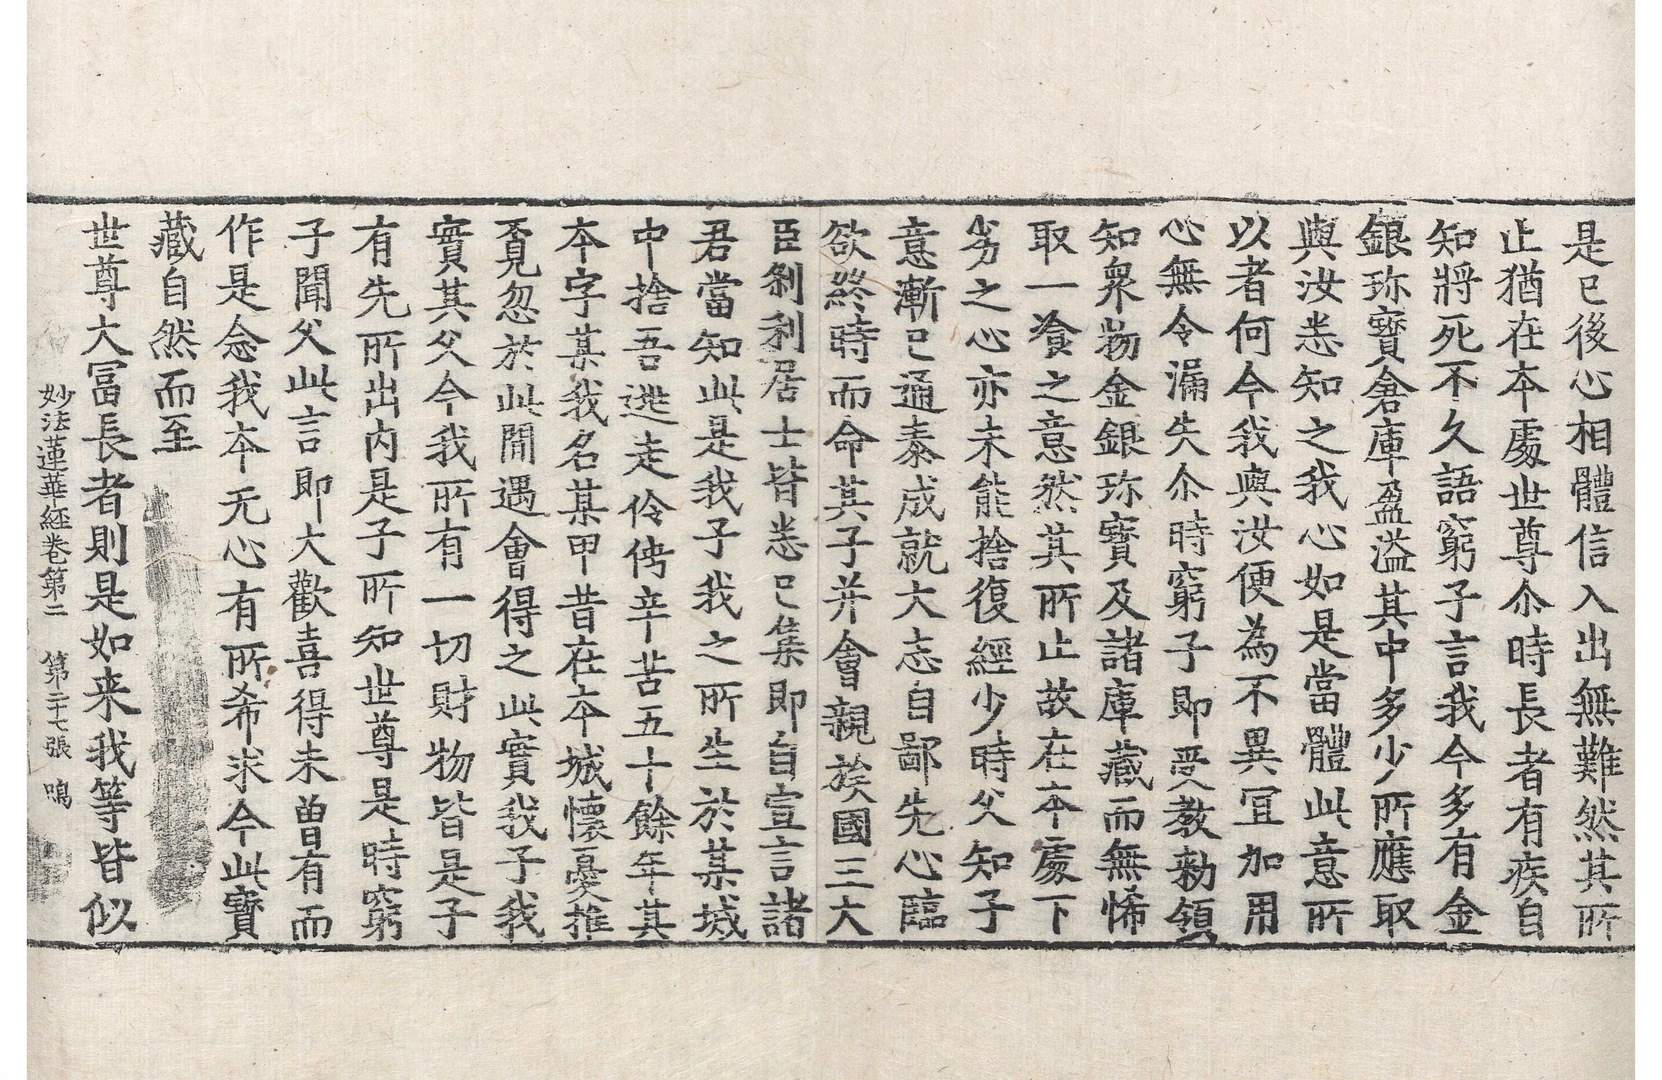 是已後心相體信入出無難然其所
止猶在本處世尊尒時長者有疾自
知將死不久語窮子言我今多有金
銀珎寶倉庫盈溢其中多少所應取
與汝悉知之我心如是當體此意所
以者何今我與汝便為不異冝加用
心無令漏失尒時窮子即受教勑領
知衆物金銀珎寶及諸庫藏而無悕
取一飡之意然其所止故在本處下
劣之心亦未能捨復經少時父知子
意漸已通泰成就大志自鄙先心臨
欲終時而命其子并會親族國王大
臣剎利居士皆悉已集即自宣言諸
君當知此是我子我之所生於某城
中捨吾逃走伶俜辛苦五十餘年其
本字某我名某甲昔在本城懷憂推
覔忽於此間遇會得之此實我子我
實其父今我所有一切財物皆是子
有先所出內是子所知世尊是時窮
子聞父此言即大歡喜得未曽有而
作是念我本无心有所希求今此寶
藏自然而至
世尊大冨長者則是如来我等皆似
妙法蓮華経卷第二 第二十七張 鳴